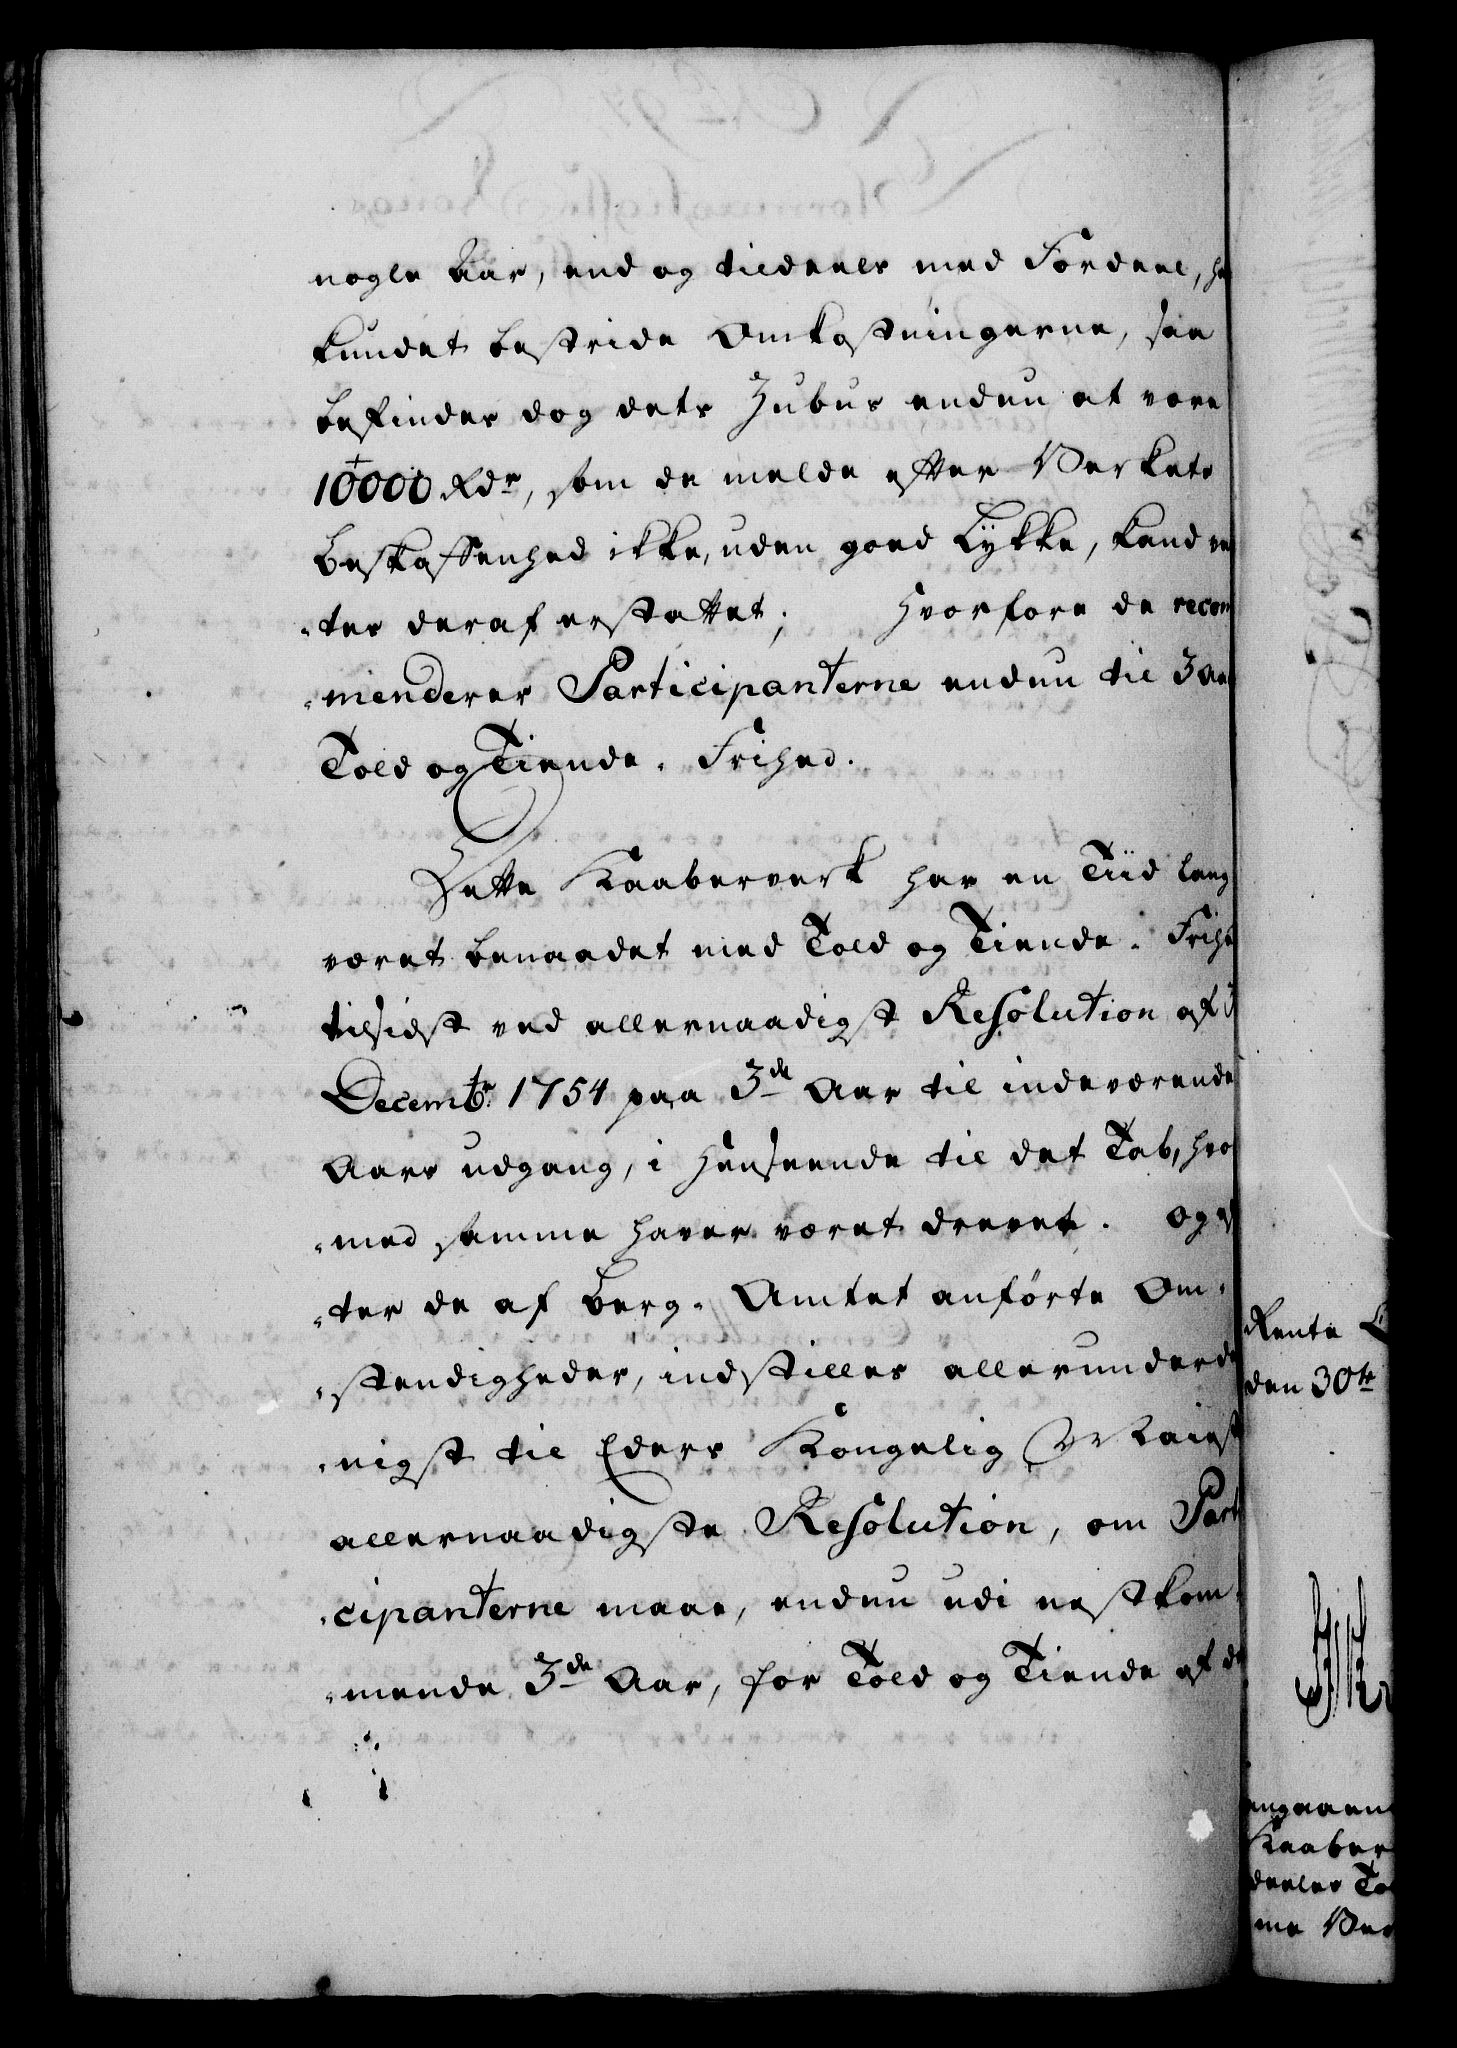 nogle Aar, end og tildeels med Fordeel, ha
kundet bestride Omkostningerne, saa
befindes dog dets Zubus endnu at være
10000 Rdr, som de melde efter Verkets
Beskaffenhed ikke, uden goed Lykke, kand ve
-tes deraf erstattet; Hvorfore de recom
-menderer Participanterne endnu til 3 Aar
Told og Tiende-Frihed.
Dette Kaaberverk har en Tiid lang
været benaadet med Told og Tiende-Frihe
tilsidst ved allernaadigst Resolution af
Decembr. 1754 paa 3de Aar til indeværende
Aars udgang, i Henseende til det Tab, hvo
-med samme haver været drevet. Og ef
-ter de af Berg-Amtet anførte Om-
-stendigheder, indstilles allerunderda
-nigst til Eders Kongelig Maiest
allernaadigste Resolution, om Parti
-cipanterne maae, endnu udi nestkom-
-mende 3de Aar, for Told og Tiende af de
Rente
den 30te
angaaen
Kaaber
deeles To
me Ver